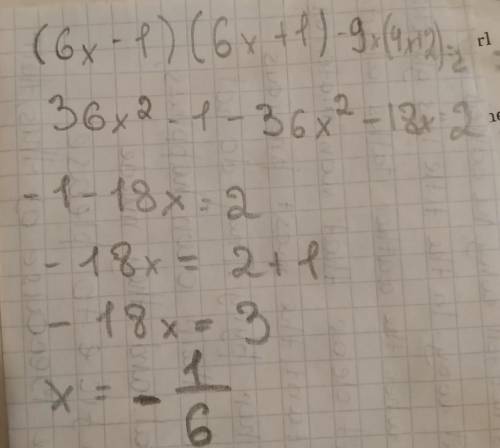 (6x-1)(6x+1)-9x(4x+2)=2
36x²-1-36x²-18x=2
-1-18x=2
-18x=2+1
-18x=3
x=-1/6